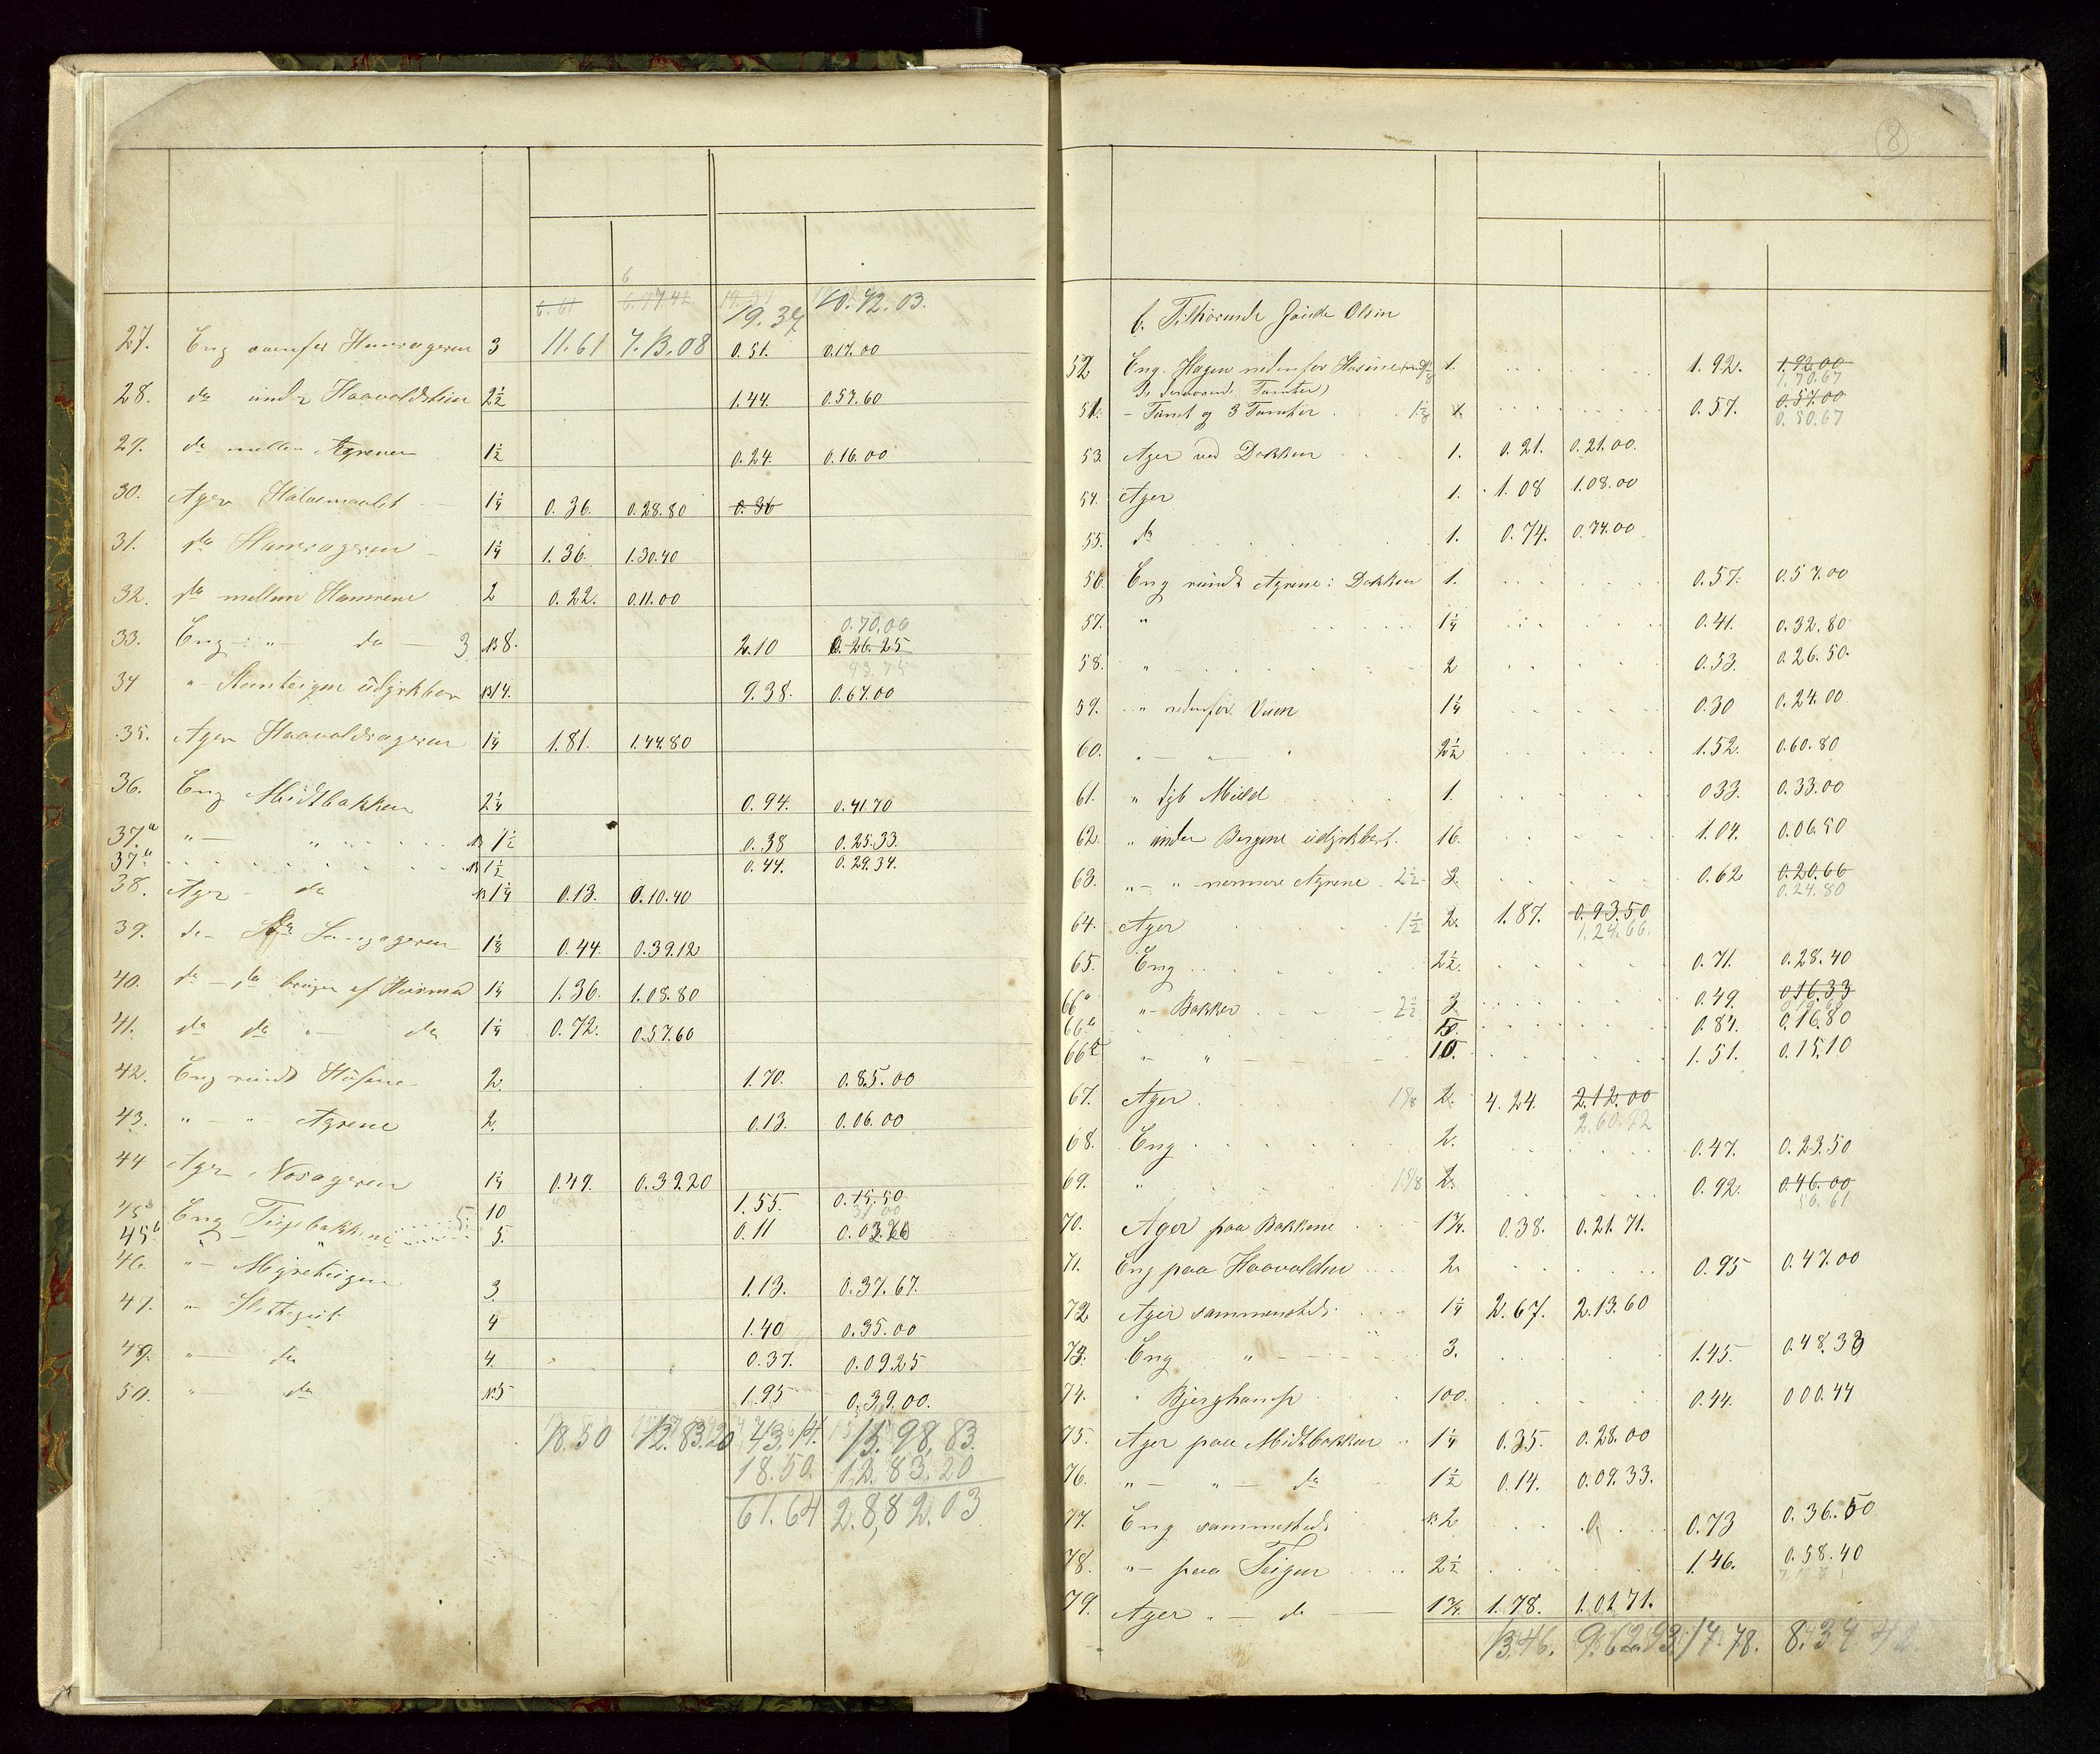 6.61 6.77.42 19.37 10.42.03.
11.61 7.13.08 19.37
27. Eng Hamrageren 3 0.51. 0.17.00
28. do under Haavoldshien 2½ 1.44. 0.57.60
29. do mellem Agrene 1½ 0.24. 0.16.00
30. Ager 1¼ 0.36. 0.28.80 0.36
31. do Hamrageren 1¼ 1.36. 1.30.40
32. do mellem Hamrene 2 0.22. 0.11.00
0.70.00
33. Eng " do 3 8. 2.10 0.26.25
43.75
34 " Steenteigen udyrkbar 14. 9.38. 0.67.00
35. Ager Haavoldsageren 1¼ 1.81. 1.44.80
36. Eng Midtbakken 2¼ 0.94. 0.41.70
37.a " " 1½ 0.38 0.25.33.
37b 1½ 0.44. 0.29.34.
38. Ager - do 1¼ 0.13. 0.10.40
39. do 1⅛ 0.44. 0.39.12
40. do - do bruges af 1¼ 1.36. 1.08.80
41. do do " do 1¼ 0.72. 0.57.60
42. Eng rundt Husene 2. 1.70. 0.85.00
43. " " Agrene 2. 0.13. 0.06.00
44 Ager Nosageren 1¼ 0.49. 0.39.20
45a Eng Teigebakkene 5. 10 1.55. 0.15.50
31.00
45b " " 5. 0.11
46. " Myreteigen 3. 1.13. 0.37.67.
47. " 4 1.40 0.35.00
49. " do 4. 0.37. 0.09.25
50. " do 5 1.95 0.39.00.
18.50 12.83.20 43.14. 15.98.83.
18.50. 12.83.20
61.64 28.82.03
8
b. Tilhørende Gaute Olsen
52. Eng. Hagen nedenfor Husene 1. 1.92. 1.92.00
1.70.67
51. - Tunet og 3 Tomter 1⅛ 1. 0.57. 0.57.00
0.50.67
53. Ager ved Dokken 1. 0.21. 0.21.00.
54. Ager 1. 1.08 1.08.00
55. do 1. 0.74. 0.74.00
56. Eng rundt Agrene i Dokken 1. 0.57. 0.57.00
57. " 1¼ 0.41. 0.32.80
58. " 2 0.53. 0.26.50.
59. " nedenfor Veien 1¼ 0.30 0.24.00
60. " " 2½ 1.52. 0.60.80
61. " dyb Muld 1. 033. 0.33.00
62. " under Bergene udyrkbart. 16. 1.04. 0.06.50
63. " " nermere Agrene 2½ 3. 0.62 0.20.66
0.24.80
64. Ager 1½ 2. 1.87. 0.93.50
1.24.66.
65. Eng 2½ 0.71. 0.28.40
66a " Bakker 2½ 3. 0.49. 0.16.33
66b 5. 0.84. 0.16.80
66c " " 10. 1.51. 0.15.10
67. Ager 1⅝ 2. 4.24. 2.12.00
2.60.92
68. Eng 2. 0.47. 0.23.50
69. " 1⅝ 2. 0.92. 0.46.00
56.61
70. Ager paa Bakkene 1¾. 0.38. 0.21.71.
71. Eng paa Haavolden 2. 0.95 0.47.00
72. Ager sammesteds 1¼ 2.67. 2.13.60
73. Eng " 3. 1.45. 0.48.33
74. " Bjerghamp 100. 0.44. 000.44
75. Ager paa Midtbakken 1¼ 0.35. 0.28.00
76. " " do 1½ 0.14. 0.09.33.
77. Eng sammesteds 2 0.73 0.36.50
78. " paa Teigen 2½ 1.46. 0.58.40
79. Ager " do 1¾. 1.78. 1.01.71.
13.46. 9.62.93 17.78. 8.34.42